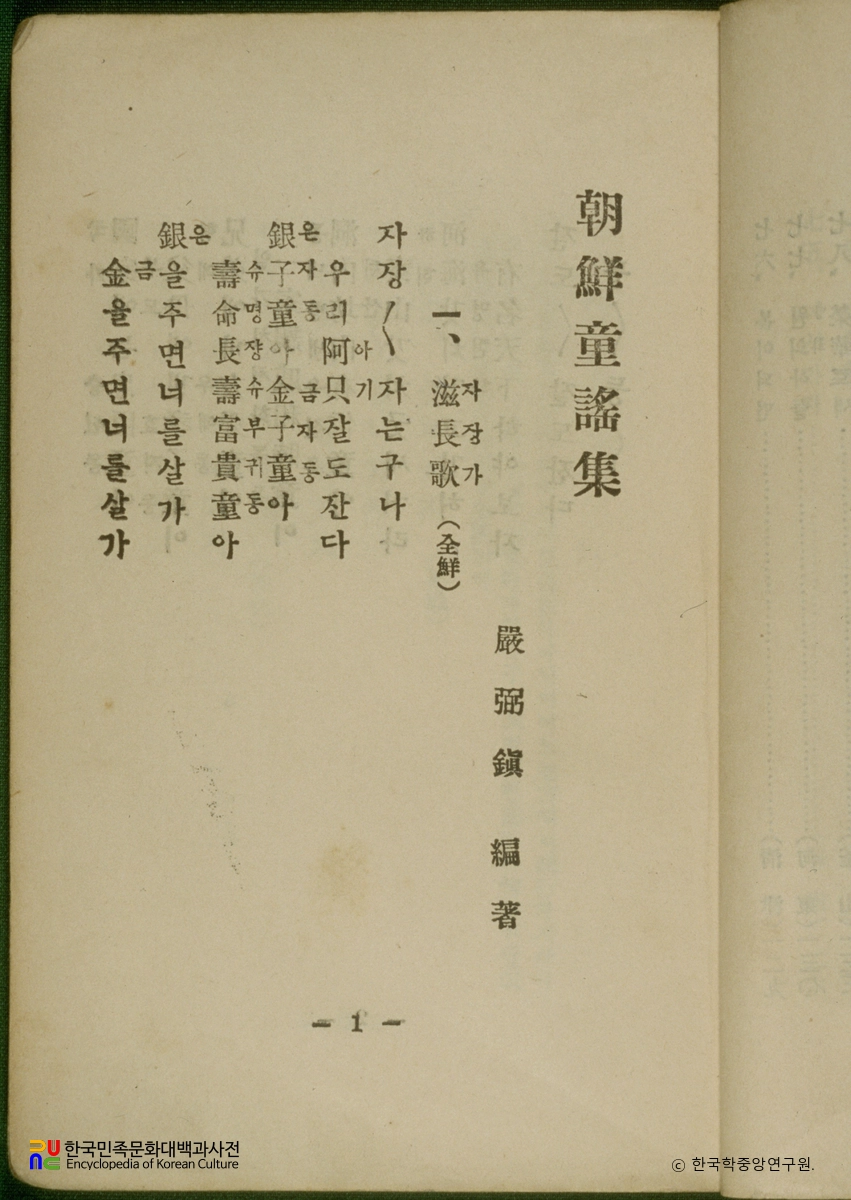 朝鮮童謠集
嚴弼鎭 編著
一、滋長歌(全鮮)
자장가
자장〳〵자는구나
우리阿只잘도잔다
아기
銀子童아金子童아
은자동 금자동
壽命長壽富貴童아
슈명쟝슈부귀동
銀을주면너를살가
은
金을주면너를살가
금
— 1 —
한국민족문화대백과사전
Encyclopedia of Korean Culture
© 한국학중앙연구원.